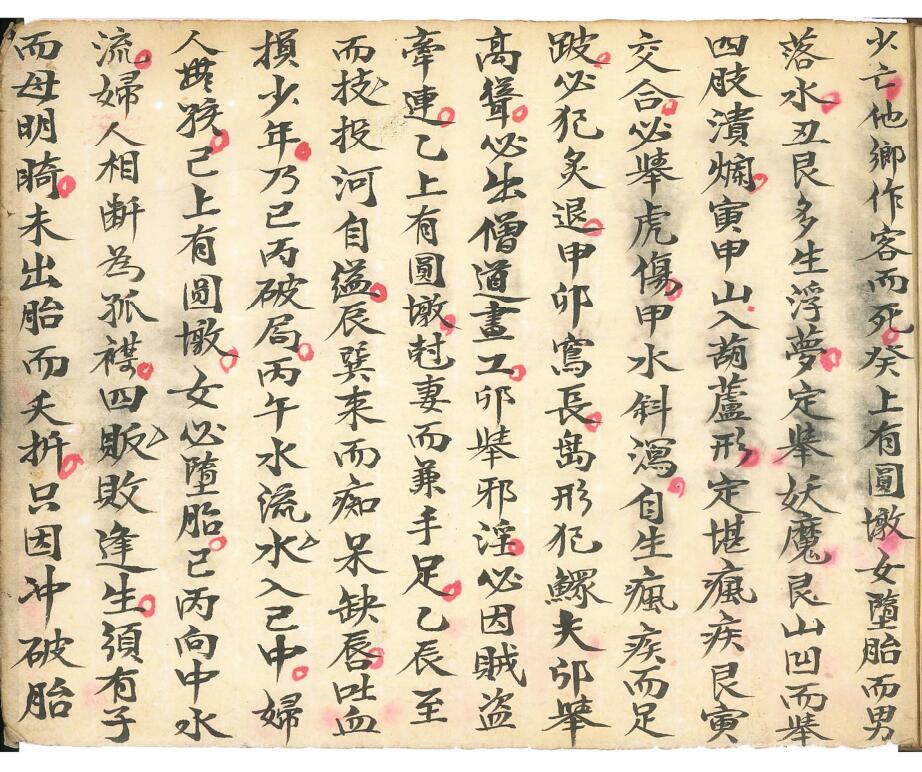 少亡他鄉作客而死癸上有圓墩女墮胎而男
落水丑艮多生浮夢定舉妖魔艮山凹而舉
四肢潰爛寅甲山入葫蘆形定堪瘋疾艮寅
交合必舉虎傷甲水斜瀉自生瘋疾而足
跛必犯炙退申卯寫長島形犯鰥夫卯舉
高聳必出僧道畫工卯舉邪淫必因賊盗
牽連乙上有圓墩尅妻而兼手足乙辰至
而技投河自缢辰巽来而痴呆缺唇吐血
損少年乃巳丙破局丙午水流水入己中婦
人難孩己上有圓墩女必墮胎己丙向中水
流婦人相断為孤襟四販敗逢生須有子
而母明䏢未出胎而夭折只因冲破胎